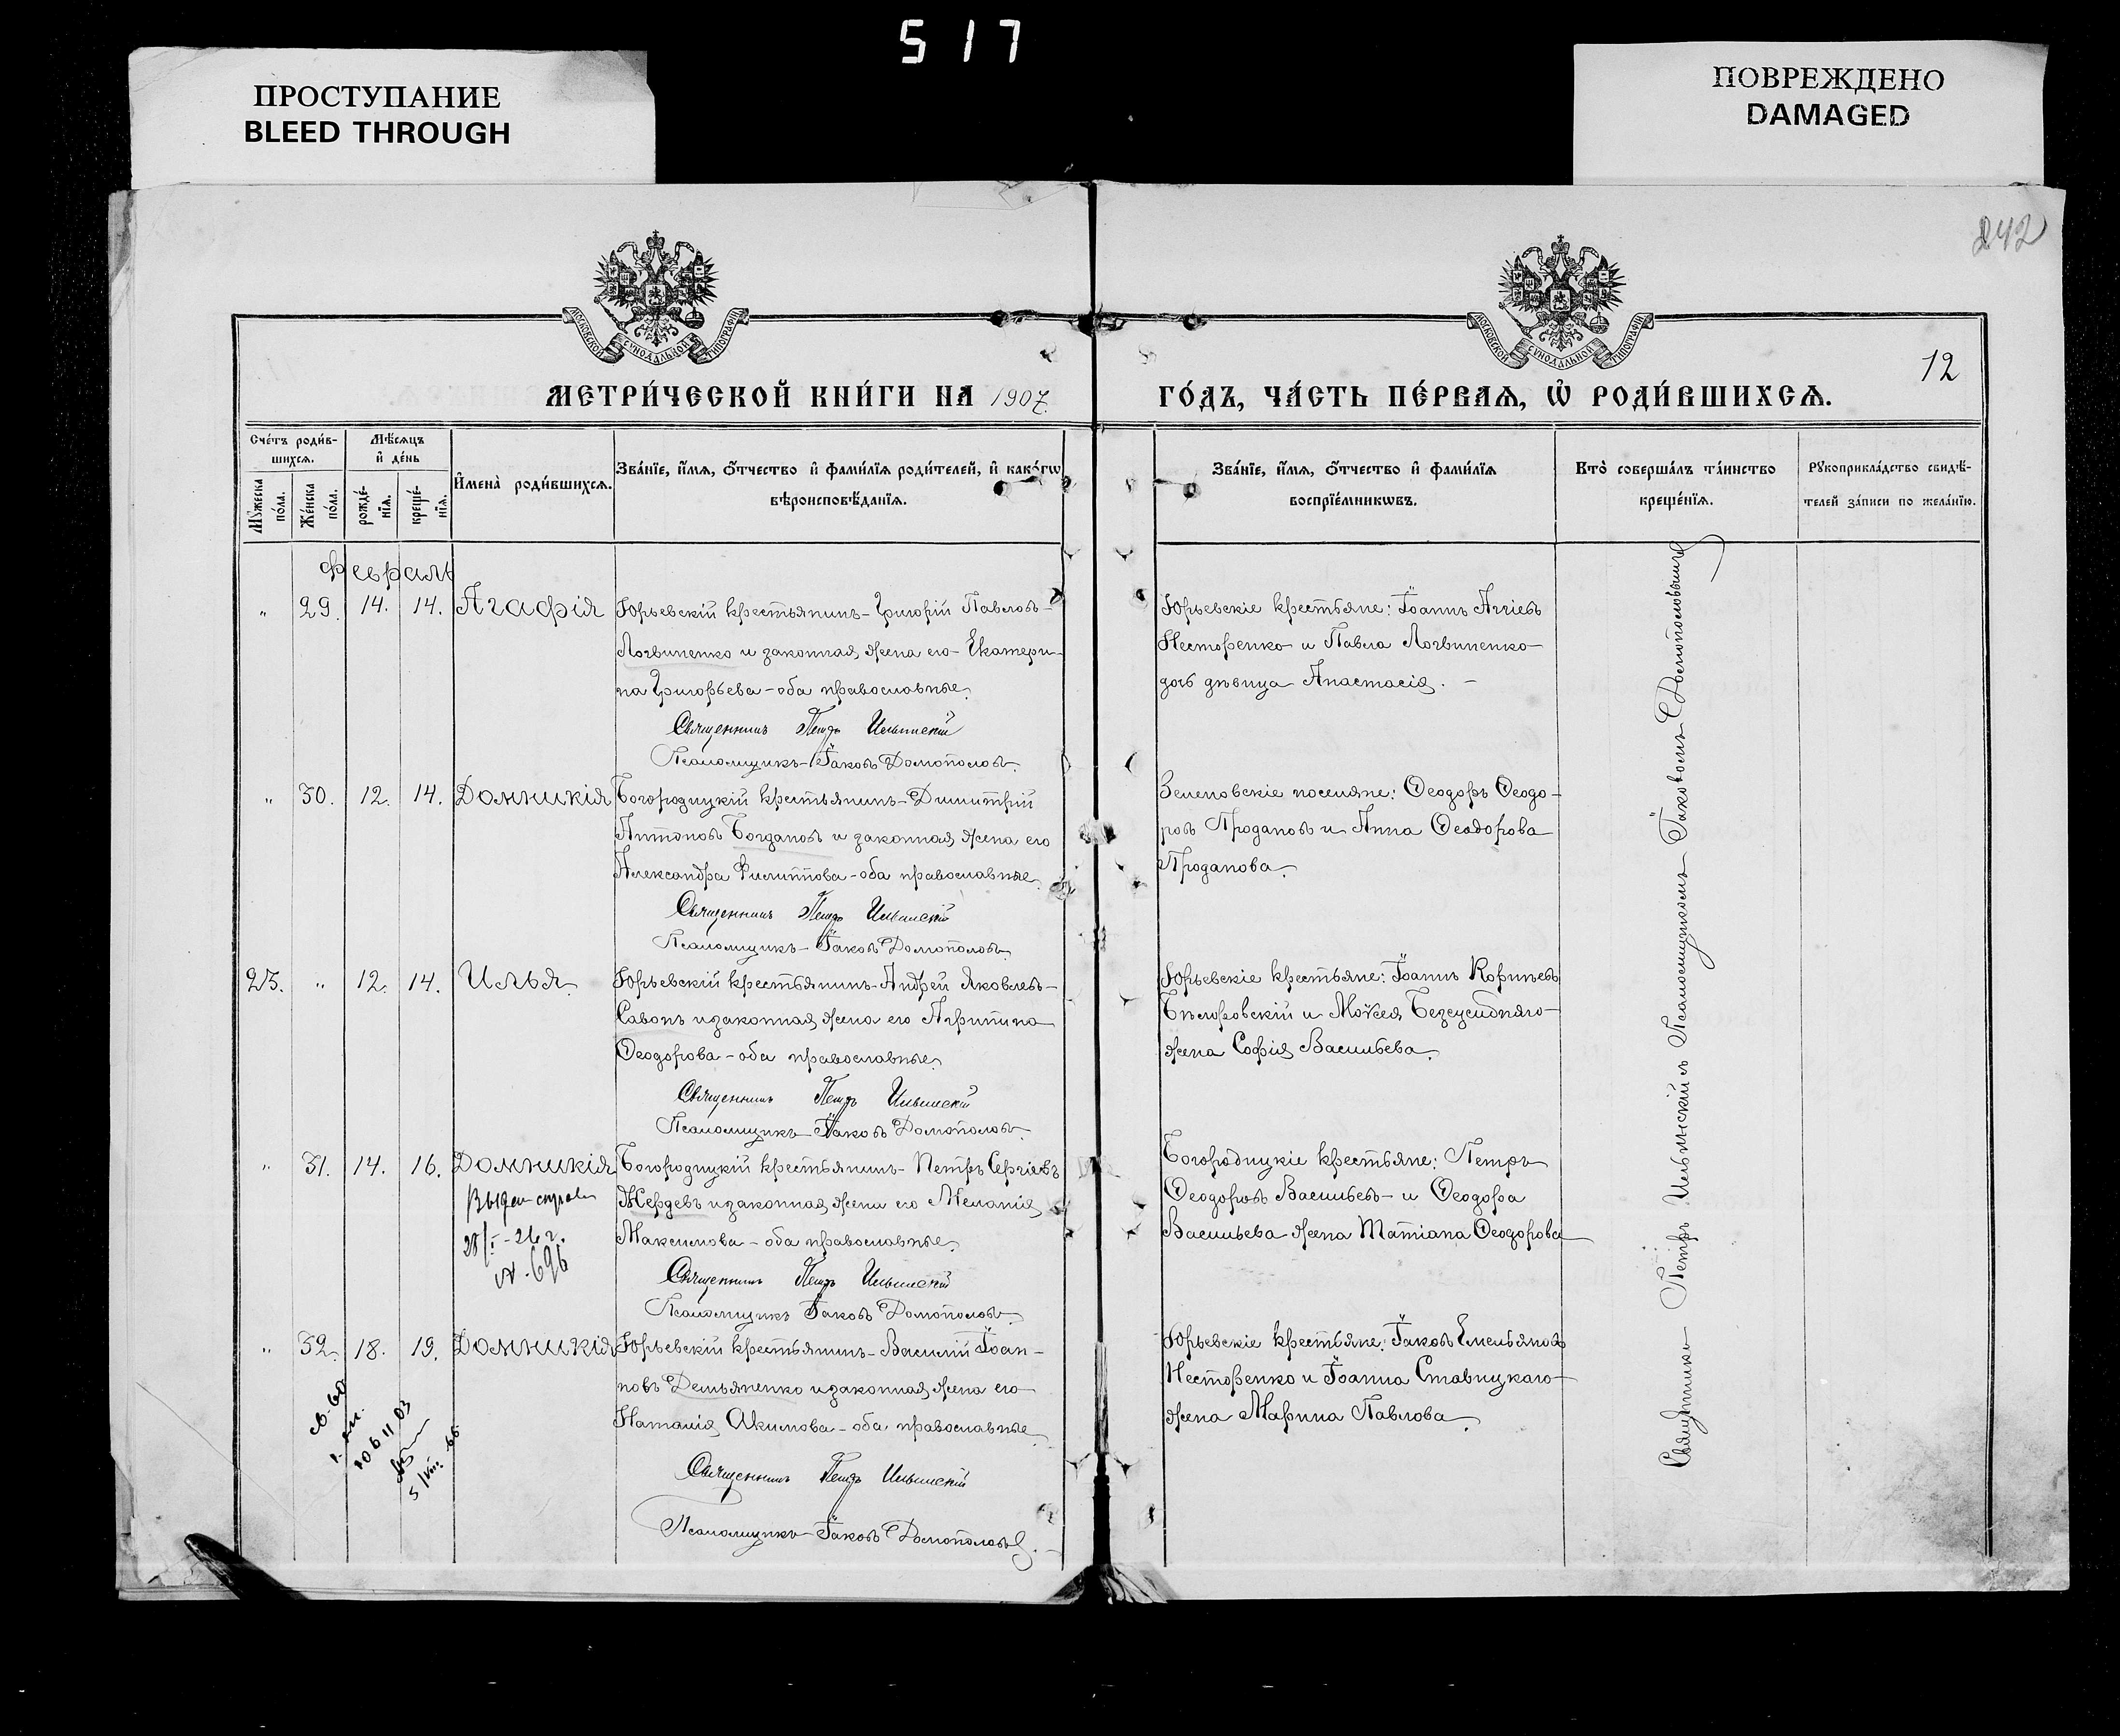 517
ПРОСТУПАНИЕ
BLEED THROUGH
ПОВРЕЖДЕНО
DAMAGED
242
МОСКОВСКОЙ СѴНОДАЛЬНОЙ ТИПОГРАФІИ
МОСКОВСКОЙ СѴНОДАЛЬНОЙ ТИПОГРАФІИ
12
МЕТРИ́ЧЕСКОЙ КНИ́ГИ НА 1907.
ГО́ДЪ, ЧА́СТЬ ПЕ́РВАѦ, Ѡ҆ РОДИ́ВШИХСѦ.
Сче́тъ роди́в-
шихсѧ.
Мѣ́сѧцъ
и҆ де́нь
Мꙋ́жеска по́ла.
Же́нска по́ла.
рожде́-
нїѧ.
креще́-
нїѧ.
И҆мена̀ роди́вшихсѧ.
Зва́нїе, и҆́мѧ, ѻ҆́тчество и҆ фами́лїѧ роди́телей, и҆ како́гѡ
вѣроисповѣ́данїѧ.
Зва́нїе, и҆́мѧ, ѻ҆́тчество и҆ фами́лїѧ
воспрїе́мникѡвъ.
Кто̀ соверша́лъ та́инство
креще́нїѧ.
Рꙋкоприкла́дство свидѣ́-
телей за́писи по жела́нїю.
Февраль
„ 29. 14. 14. Агафія
Юрьевскій крестьянинъ - Григорій Павловъ -
Логвиненко и законная жена его - Екатери-
на Григорьева - оба православные.
Священникъ Петръ Ильинскій
Псаломщикъ - Іаковъ Домополовъ.
Юрьевскіе крестьяне: Іоаннъ Аггіевъ
Несторенко и Павла Логвиненко
дочь дѣвица Анастасія. -
„ 30. 12. 14. Домникія
Богородицкій крестьянинъ - Димитрій
Антоновъ Богдановъ и законная жена его
Александра Филиппова - оба православные.
Священникъ Петръ Ильинскій
Псаломщикъ - Іаковъ Домополовъ.
Зеленовскіе поселяне: Ѳеодоръ Ѳеодо-
ровъ Продановъ и Анна Ѳеодорова
Проданова.
25. „ 12. 14. Илья.
Юрьевскій крестьянинъ - Андрей Яковлевъ -
Савонъ и законная жена его Агрипина
Ѳеодорова - оба православные.
Священникъ Петръ Ильинскій
Псаломщикъ - Іаковъ Домополовъ.
Юрьевскіе крестьяне: Іоаннъ Корнѣевъ
Бѣлоровскій и Моѵсея
жена Софія Васильева.
„ 31. 14. 16. Домникія
28/I-26 г.
№ 696
Богородицкій крестьянинъ - Петръ Сергіевъ
Жердевъ и законная жена его Меланія
Максимова - оба православные.
Священникъ Петръ Ильинскій
Псаломщикъ Іаковъ Домополовъ.
Богородицкіе крестьяне: Петръ
Ѳеодоровъ Васильевъ - и Ѳеодора
Васильева жена Татіана Ѳеодорова
„ 32. 18. 19. Домникія
Юрьевскій крестьянинъ - Василій Іоан-
новъ Демьяненко и законная жена его
Наталія Акимова - оба православные.
Священникъ Петръ Ильинскій
Псаломщикъ Іаковъ Домополовъ.
Юрьевскіе крестьяне: Іаковъ Емельяновъ
Несторенко и Іоанна Ставицкаго
жена Марина Павлова.
Священникъ Петръ Ильинскій съ Псаломщикомъ Іаковомъ Домополовымъ